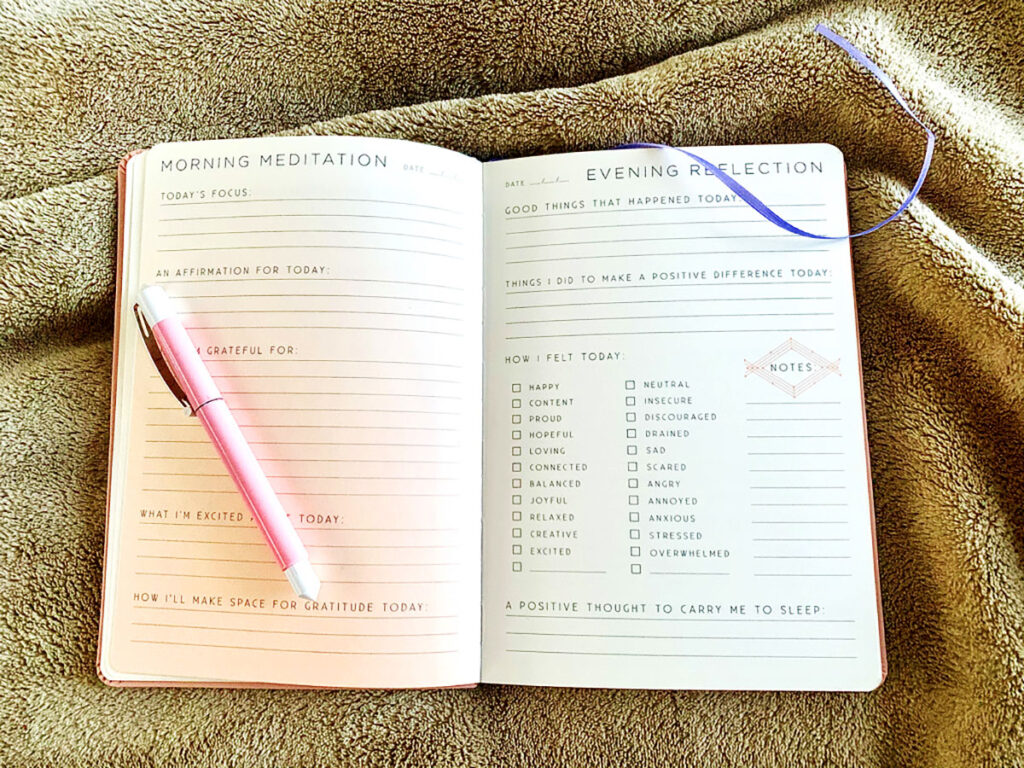 MORNING MEDITATION
DATE
TODAY'S FOCUS:
AN AFFIRMATION FOR TODAY:
GRATEFUL FOR:
WHAT I'M EXCITED TODAY:
HOW I'LL MAKE SPACE FOR GRATITUDE TODAY:
DATE
EVENING REFLECTION
GOOD THINGS THAT HAPPENED TODAY:
THINGS I DID TO MAKE A POSITIVE DIFFERENCE TODAY:
HOW I FELT TODAY:
HAPPY
CONTENT
PROUD
HOPEFUL
LOVING
CONNECTED
BALANCED
JOYFUL
RELAXED
CREATIVE
EXCITED
NEUTRAL
INSECURE
DISCOURAGED
DRAINED
SAD
SCARED
ANGRY
ANNOYED
ANXIOUS
STRESSED
OVERWHELMED
NOTES:
A POSITIVE THOUGHT TO CARRY ME TO SLEEP: